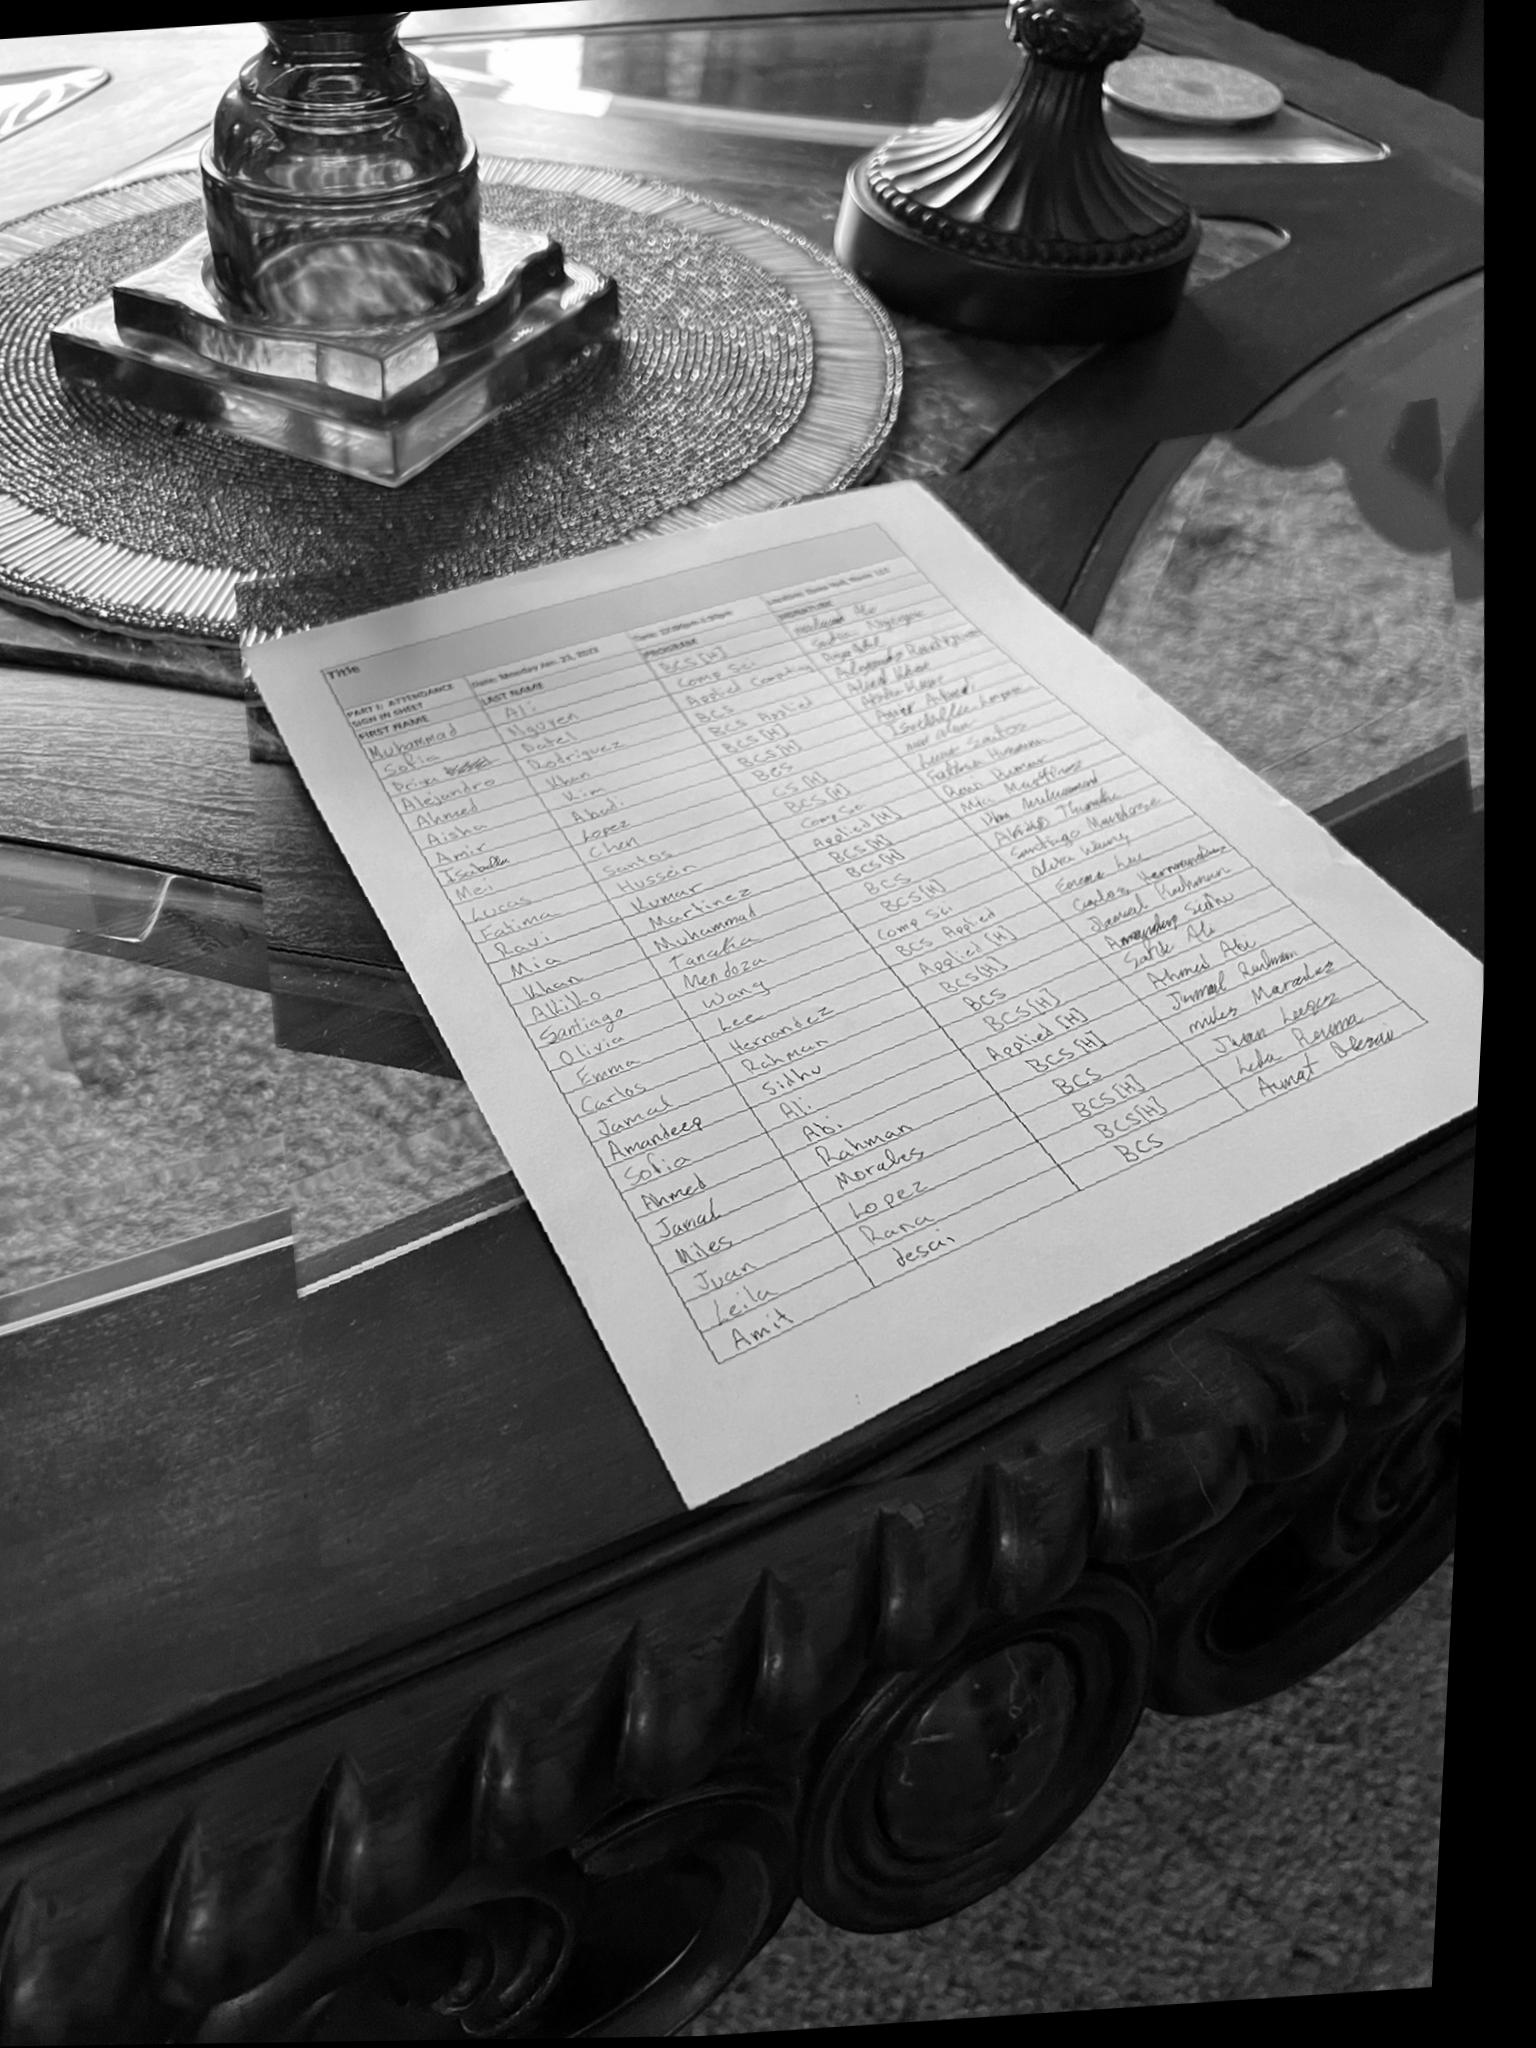 Title
PART I: ATTENDANCE SIGN IN SHEET Date: Monday Jan. 23, 2023 Time:
FIRST NAME LAST NAME PROGRAM SIGNATURE
Muhammad Ali BCS [H] Ali
Sofia Nguyen Comp Sci Sofia Nguyen
Priya Patel Applied Computing
Alejandro Rodriguez BCS Alejandro
Ahmed Khan BCS Applied Ahmed Khan
Aisha Kim BCS [H]
Amir Ahadi BCS [H] Amir Ahadi
Isabella Lopez BCS Isabella Lopez
Mei Chen CS [H]
Lucas Santos BCS [H] Lucas Santos
Fatima Hussein Comp Sci Fatima Hussein
Ravi Kumar Applied [H] Ravi Kumar
Mia Martinez BCS [H] Mia Martinez
Khan Muhammad BCS [H] Khan Muhammad
Akiko Tanaka BCS Akiko Tanaka
Santiago Mendoza BCS [H] Santiago Mendoza
Olivia Wang Comp Sci Olivia Wang
Emma Lee BCS Applied Emma Lee
Carlos Hernandez Applied [H] Carlos Hernandez
Jamal Rahman BCS [H] Jamal Rahman
Amandeep Sidhu BCS Amandeep Sidhu
Sofia Ali BCS [H] Ali
Ahmed Abi Applied [H] Ahmed Abi
Jamal Rahman BCS [H] Jamal Rahman
Miles Morales BCS miles Morales
Juan Lopez BCS [H] Juan Lopez
Leila Rana BCS [H] Leila
Amit desai BCS